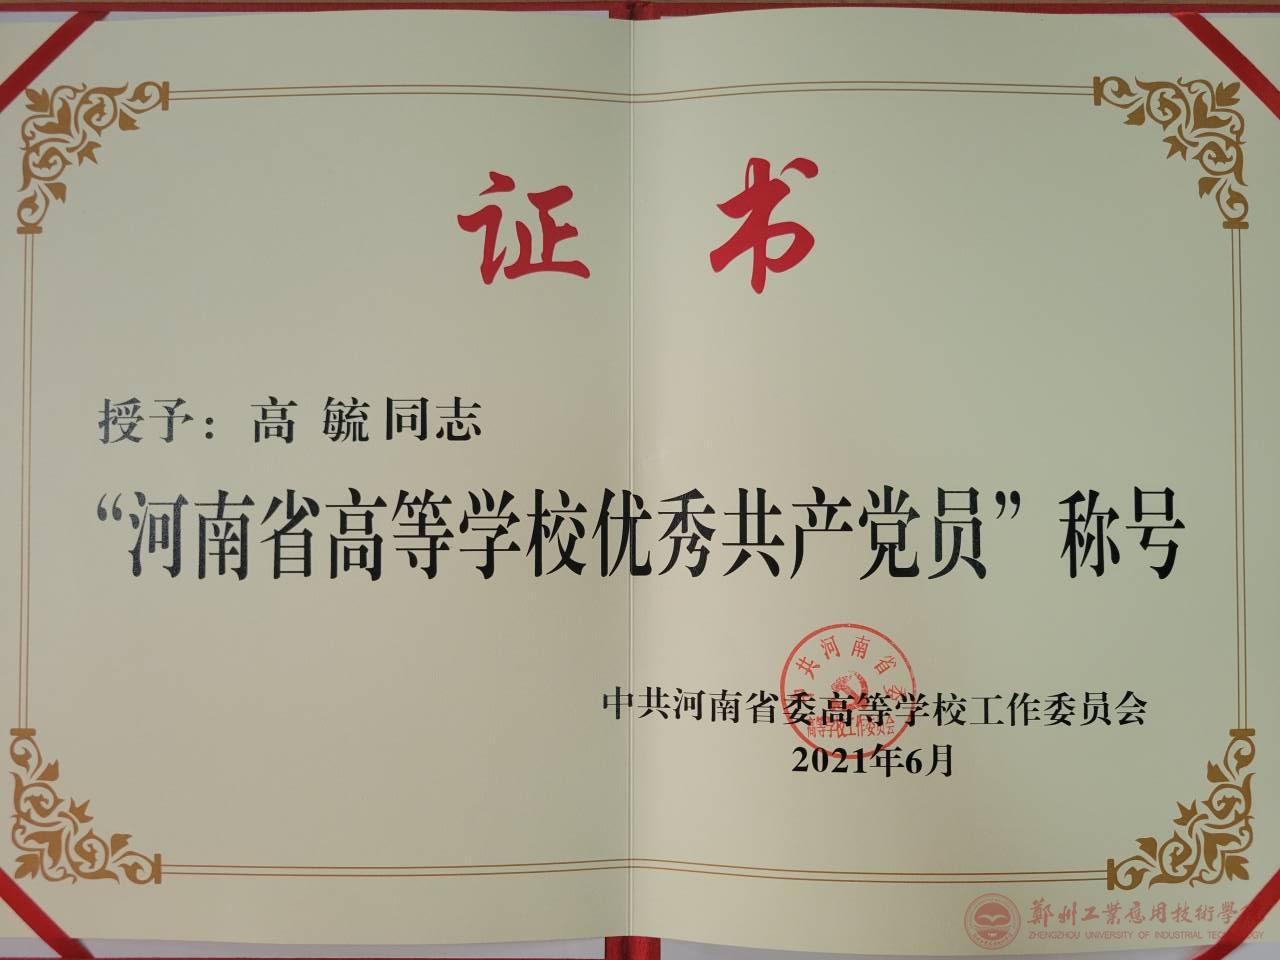 证 书
授予：高 毓 同志
“河南省高等学校优秀共产党员”称号
中共河南省委
高等学校工作委员会
中共河南省委高等学校工作委员会
2021年6月
鄭州工業應用技術學院
ZHENGZHOU UNIVERSITY OF INDUSTRIAL TECHNOLOGY